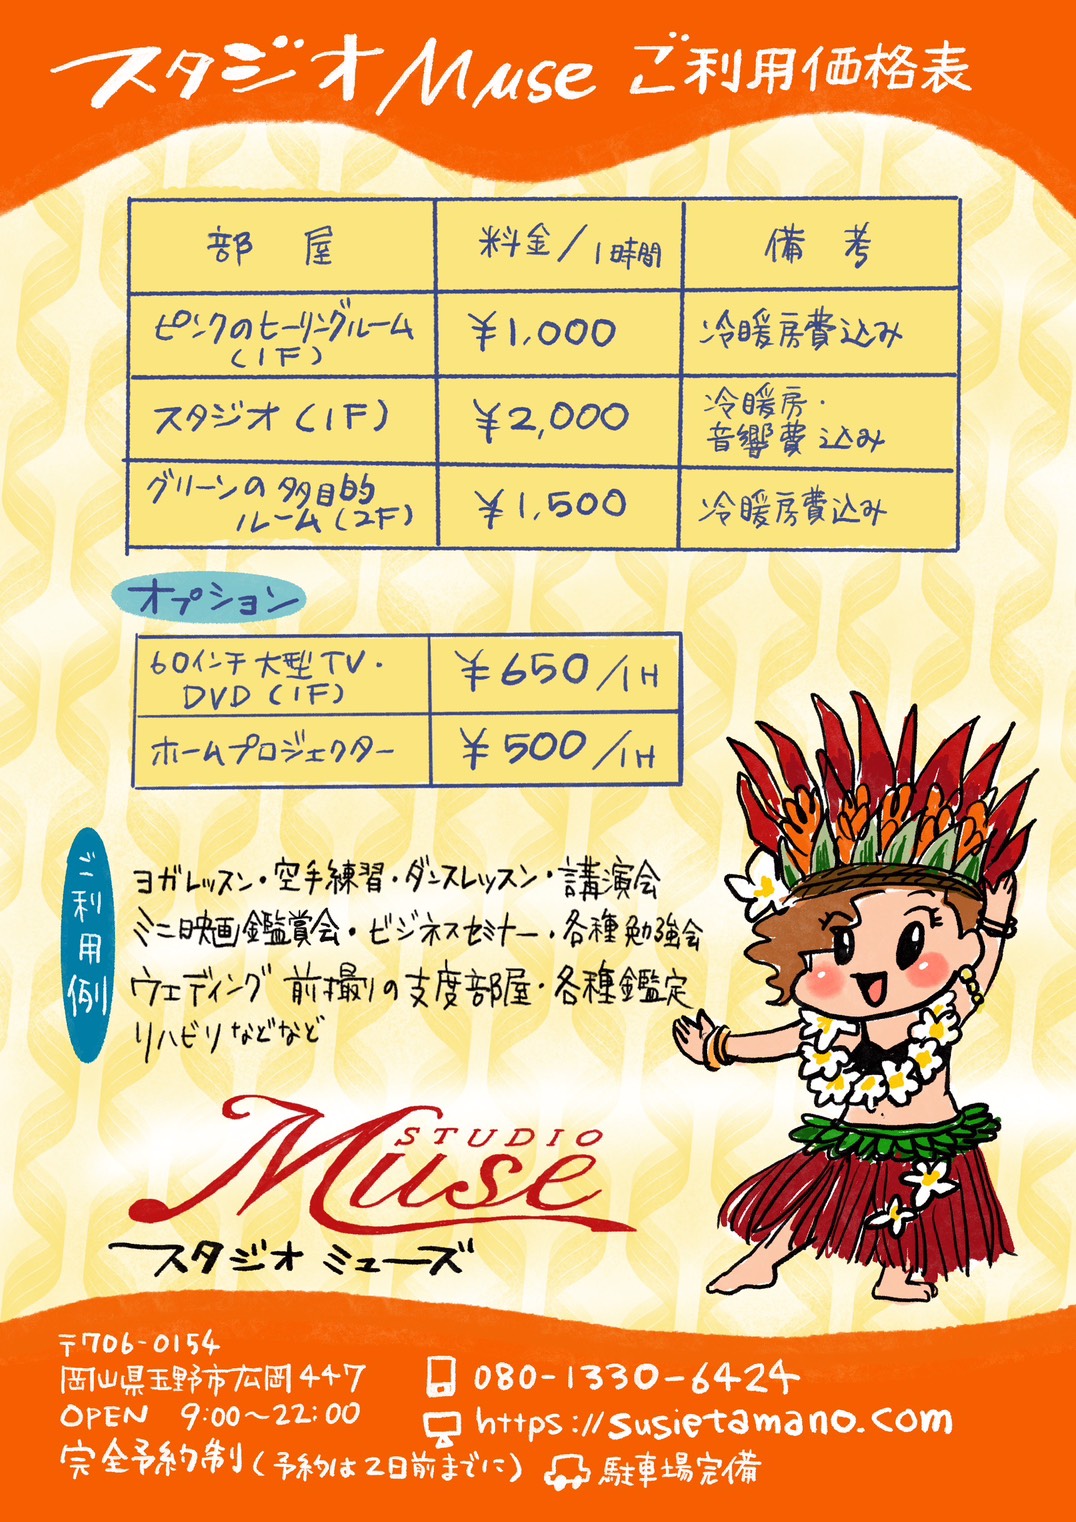 スタジオMuse ご利用価格表
部屋 料金/1時間 備考
ピンクのヒーリングルーム
(1F)
¥1,000
冷暖房費込み
スタジオ(1F)
¥2,000
冷暖房・
音響費込み
グリーンの多目的
ルーム(2F)
¥1,500
冷暖房費込み
オプション
60インチ大型TV・
DVD(1F)
¥650/1H
ホームプロジェクター
¥500/1H
ご利用例
ヨガレッスン・空手練習・ダンスレッスン・講演会
ミニ映画鑑賞会・ビジネスセミナー・各種勉強会
ウェディング前撮りの支度部屋・各種鑑定
リハビリなどなど
STUDIO
Muse
スタジオ ミューズ
〒706-0154
岡山県玉野市広岡447
OPEN 9:00~22:00
完全予約制(予約は2日前までに)
080-1330-6424
https://susietamano.com
駐車場完備